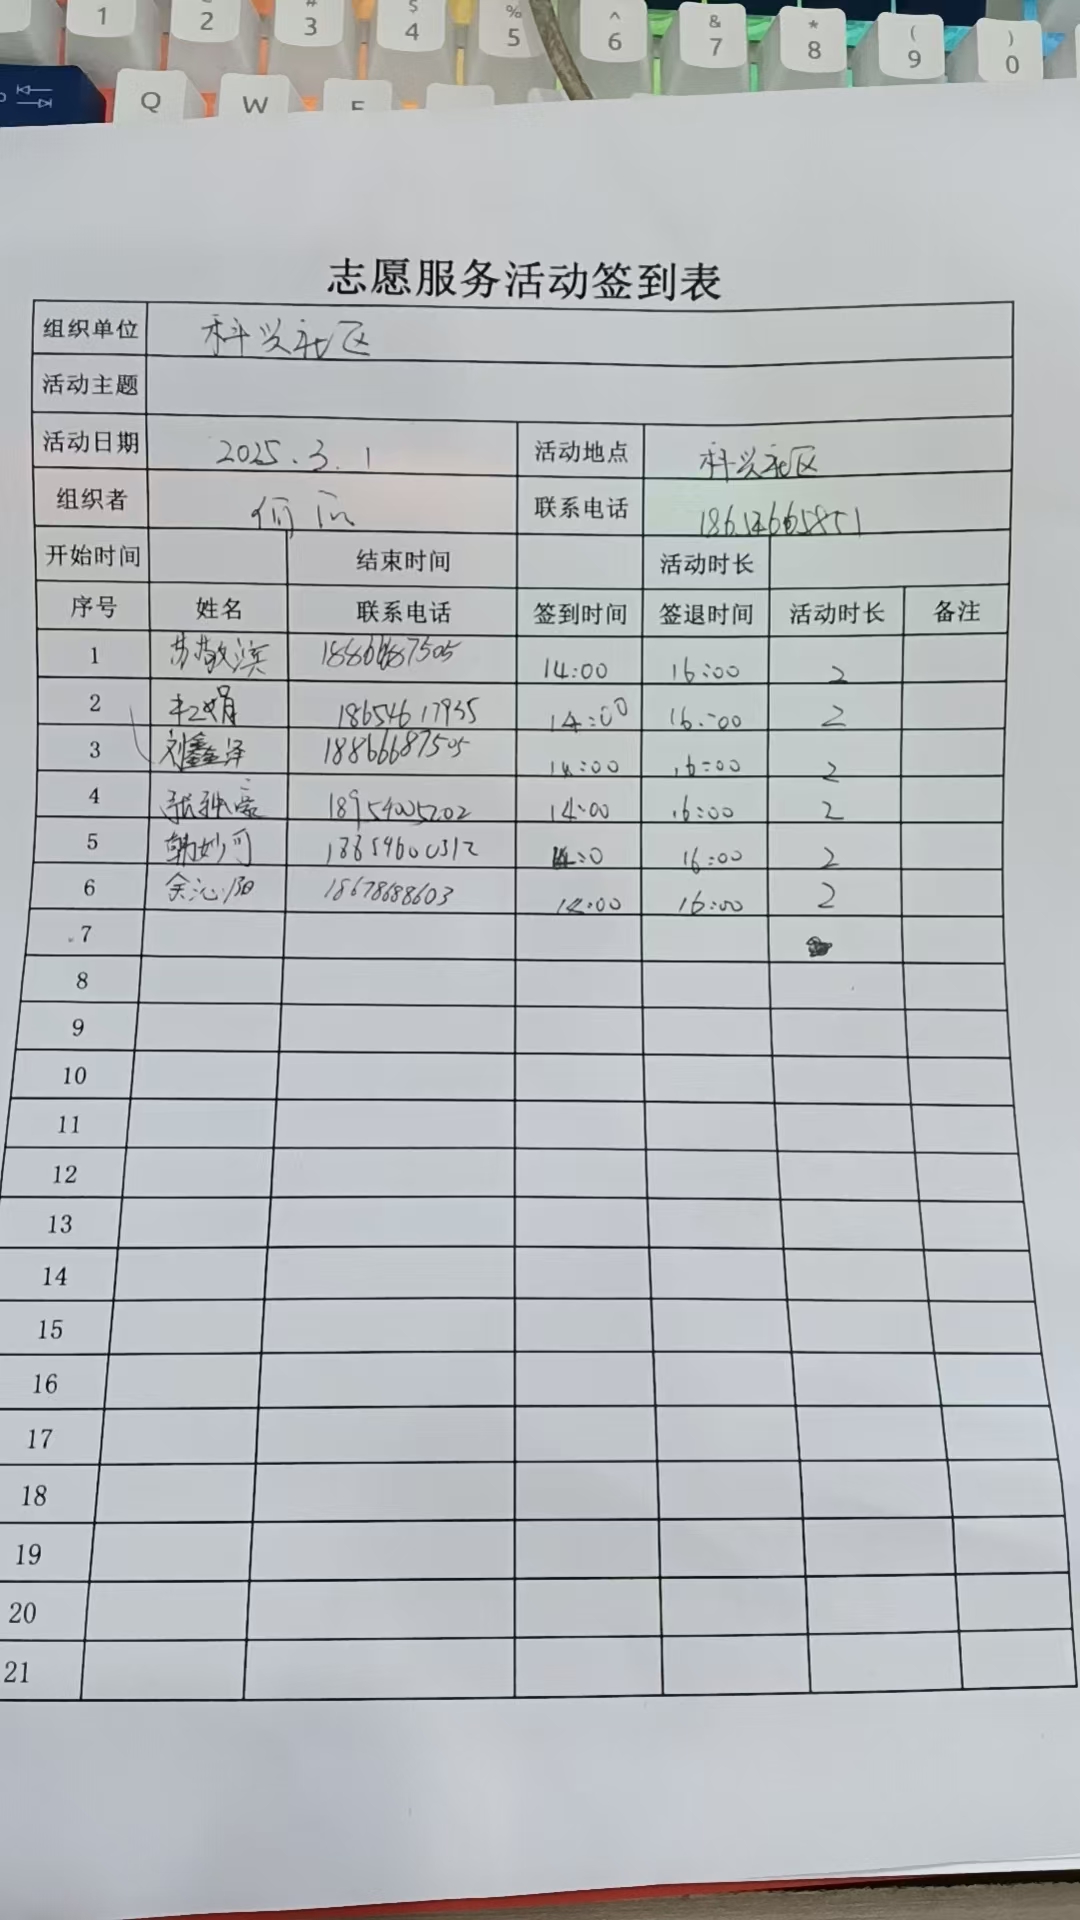 1 2 3 $ 4 % 5 ^ 6 & 7 * 8 ( 9 ) 0
Q W E
志愿服务活动签到表
组织单位 科兴社区
活动主题
活动日期 2025.3.1 活动地点 科兴社区
组织者 联系电话
开始时间 结束时间 活动时长
序号 姓名 联系电话 签到时间 签退时间 活动时长 备注
1 苏敬滨 14:00 16:00 2
2 18654617935 14:00 16:00 2
3 刘鑫泽 18866687505 14:00 16:00 2
4 18954005202 14:00 16:00 2
5 韩妙可 18659600312 16:00 2
6 余沁阳 18678688603 14:00 16:00 2
7
8
9
10
11
12
13
14
15
16
17
18
19
20
21